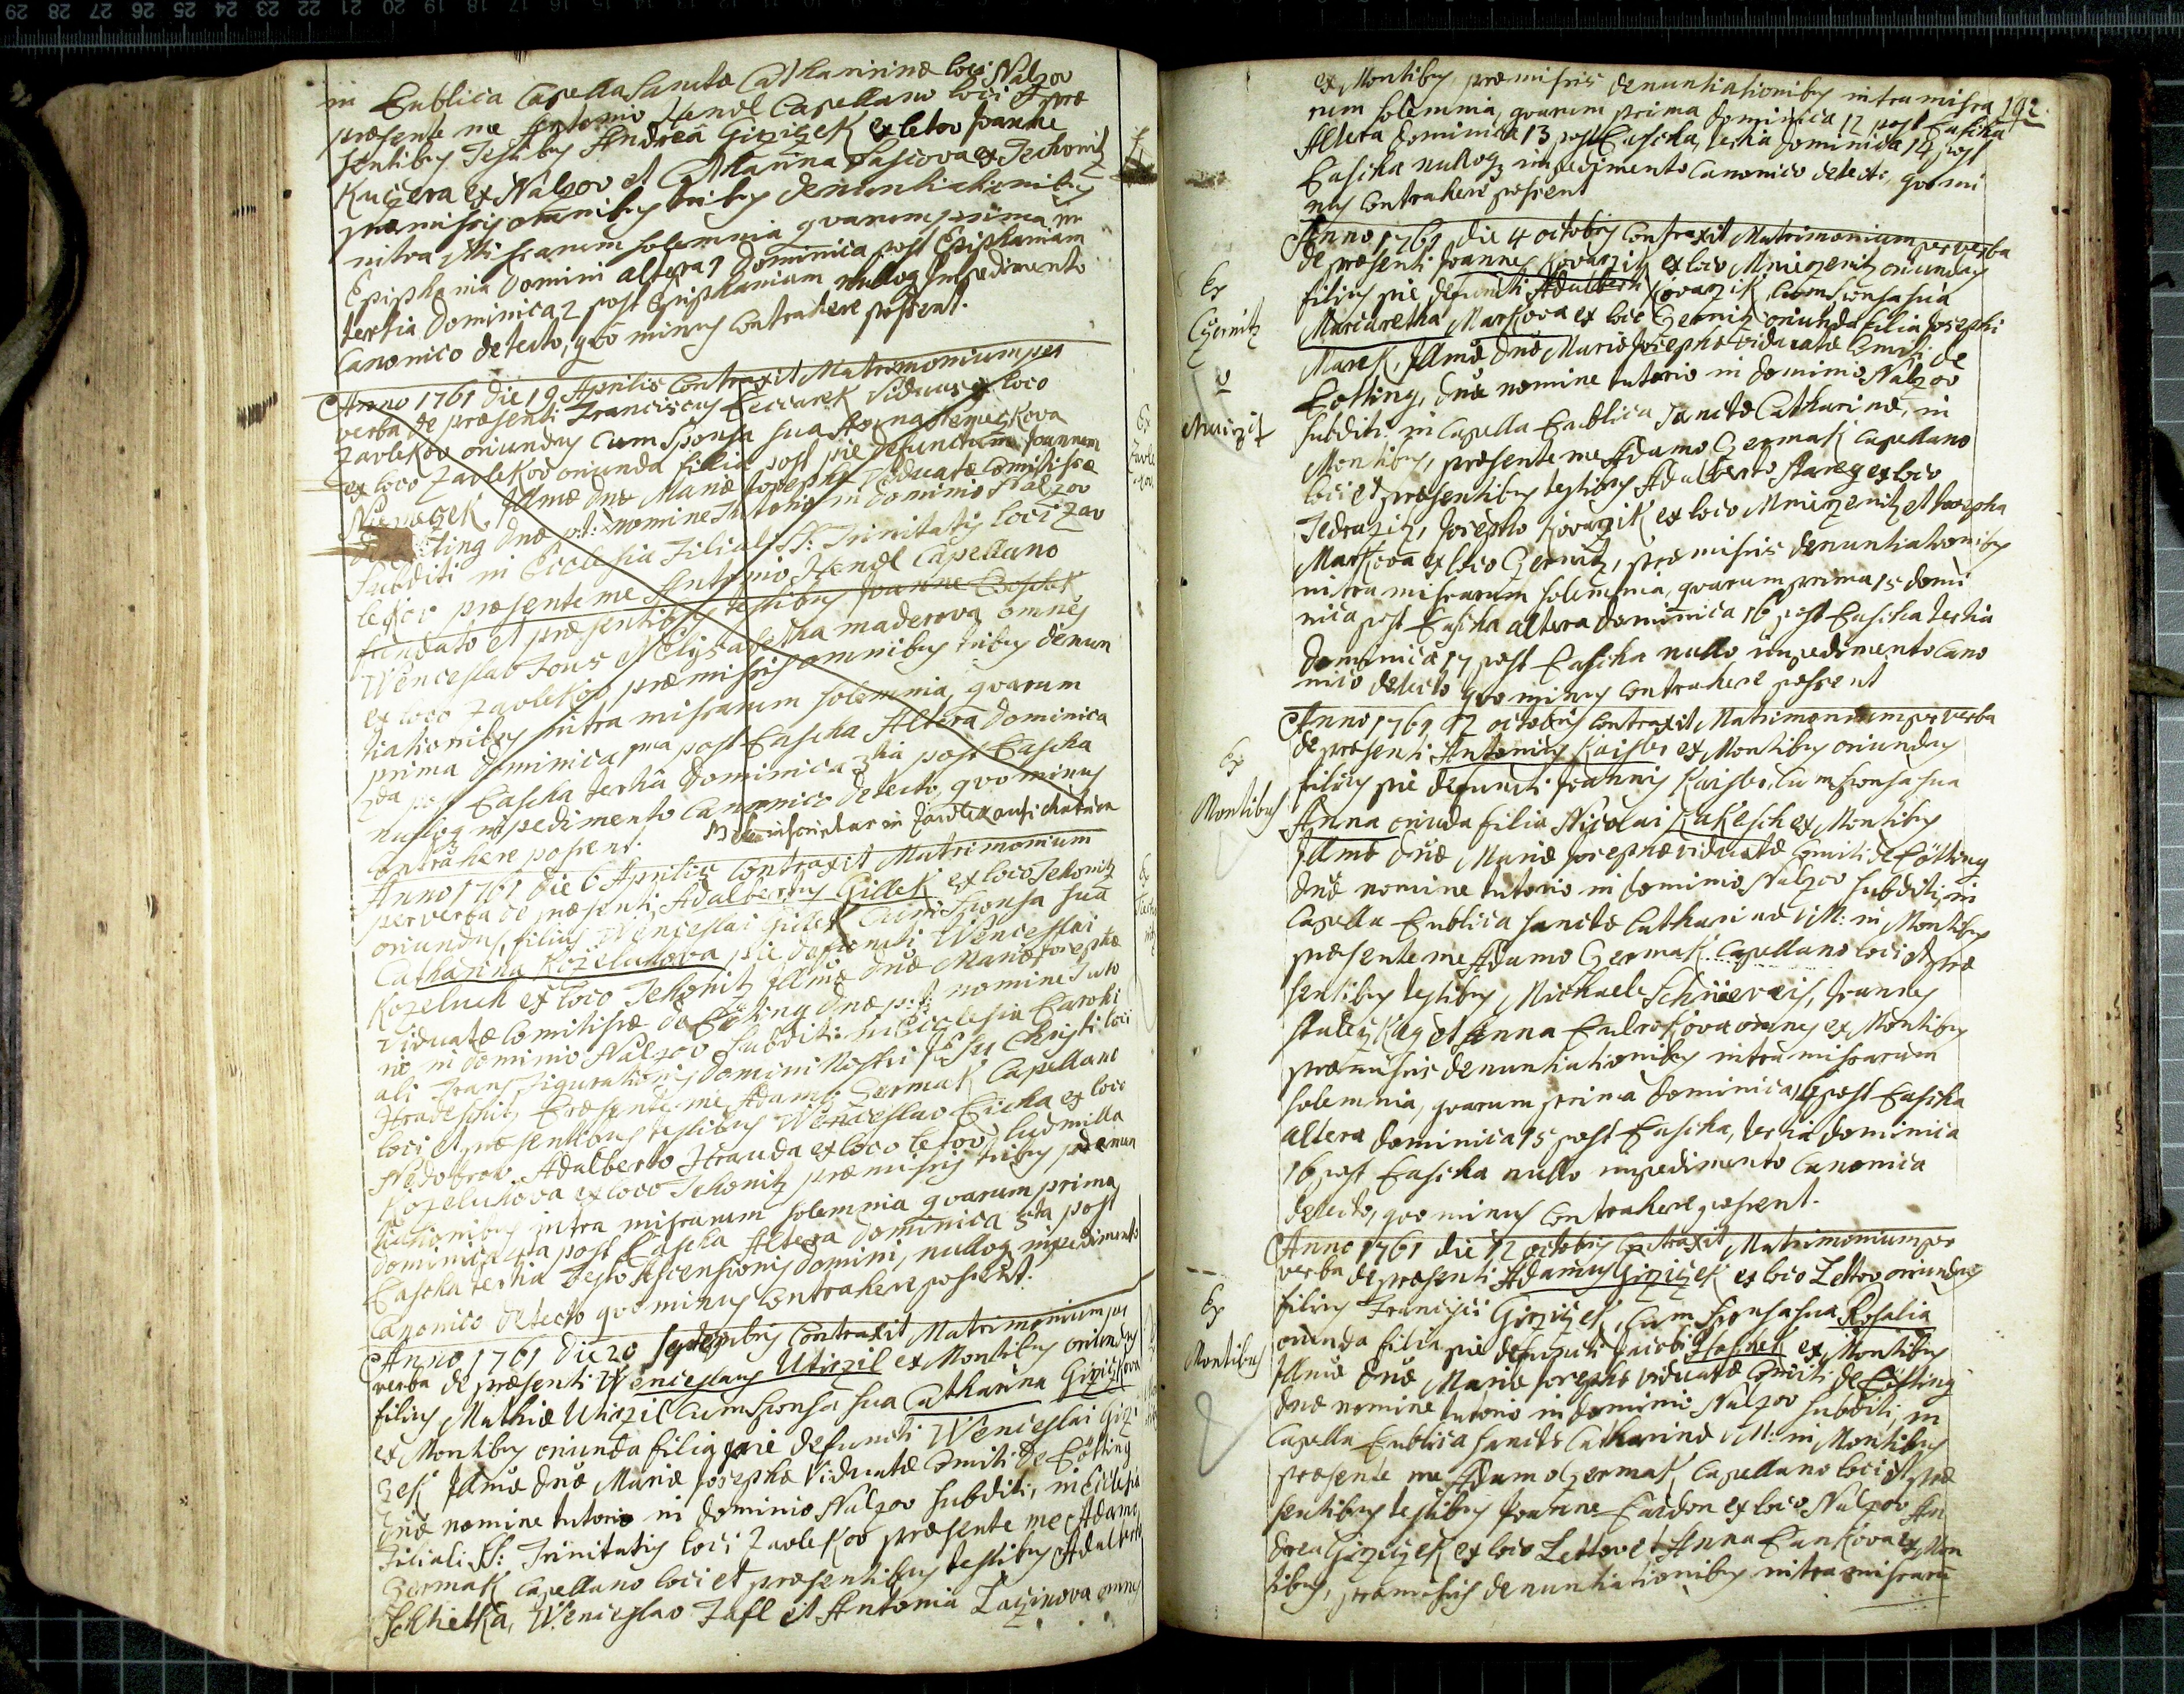 in Publica Capella Sanctæ Catharinæ loci Nalzov
præsente me Antonio Hendl Capellano loci et præ
sentibus Testibus Andrea Girziczek ex letov Joanne
Kuczera ex Nalzov et Catharina Pascova ex Techonitz
præmissis omnibus tribus denuntiationibus
intra Missarum solemnia quarum prima in
Epiphania Domini altera 1 Dominica post Epiphaniam
tertia Dominica 2 post Epiphaniam nulloq Impedimento
Canonico detecto, quo minus contrahere possent.
Anno 1761 die 19 Aprilis Contraxit Matrimonium per
verba de præsenti Franciscus Peccarek Viduus ex loco
Zavlekov oriundus cum Sponsa sua Anna Nemeczkova
ex loco Zavlekov oriunda filia post pie Defunctum Joannem
Niemeczek, Illmæ Dnæ Mariæ Josephæ Viduatæ Comitissæ
ting Dnæ p:t: nomine Tutorio in Dominio Nalzov
Subditi in Ecclesia Filiali SS: Trinitatis loci Zav
lekov præsente me Antonio Hendl Capellano
fundato et præsentibus testibus Joanne
Wenceslao Tous Elysabetha maderova omnes
ex loco Zavlekov præmissis omnibus tribus denun
tiationibus intra missarum solemnia, quarum
prima dominica 1ma post Pascha Altera Dominica
2da post Pascha tertia Dominica 3tia post Pascha
nulloq impedimento Canonico detecto, quo minus
contrahere possent.
Anno 1761 die 6 Aprilis Contraxit Matrimonium
per verba de præsenti Adalbertus Gillek ex loco Tehonitz
oriundus, filius Wenceslai Gillek cum Sponsa sua
Catharina Kozeluhova pie defuncti Wenceslai
Kozeluch ex loco Tehonitz Illmæ Dnæ Mariæ Josephæ
Viduatæ Comitissæ de Pötting Dnæ p:t: nomine Tuto
rio in dominio Nalzov Subditi: in Ecclesia Parochi
ali Transfigurationis Domini Nostri Jesu Christi loci
Hradeschitz Præsente me Adamo Czermak Capellano
loci et præsentibus testibus Wenceslao Picha ex loco
Nedobrow Adalberto Hrauda ex loco letov, ludmilla
Kozeluhova ex loco Tehonitz præmissis tribus denun
tiationibus intra missarum solemnia quarum prima
dominica 4ta post Pascha Altera dominica 5ta post
Pascha tertia Festo Ascensionis Domini, nulloq impedimento
Canonico detecto quo minus contrahere possent.
Anno 1761 Die 20 Septembris Contraxit Matrimonium per
verba de præsenti Wenceslaus Utirzil ex Montibus oriundus
filius Mathiæ Utirzil cum Sponsa sua Catharina Girziczkova
ex Montibus oriunda filia pie defuncti Wenceslai Girzi
czek Illmæ Dnæ Mariæ Josephæ Viduatæ Comiti: de Pötting
Dnæ nomine tutorio in dominio Nalzov subditi, in Ecclesia
Filiali SS: Trinitatis loci Zavlekov præsente me Adamo
Czermak Capellano loci et præsentibus testibus Adalberto
Schlietka, Wenceslao Zafl et Antonia Laczinova omnes
192
ex Montibus, præmissis denuntiationibus intra missa
rum solemnia, quarum prima dominica 12 post Pascha
Altera Dominica 13 post Pascha, tertia dominica 14 post
Pascha nulloq impedimento Canonico detecto, quo mi
nus contrahere possent
Anno 1761 die 4 octobris contraxit Matrimonium per verba
de præsenti Joannes Kovarzik ex loco Mnierzenitz oriundus
filius pie defuncti Adalberti Kovarzik, cum sponsa sua
Margaretha Markova ex loco Czernitz oriunda filia Josephi
Marek, Illmæ Dnæ Mariæ Josephæ viduatæ Comiti: de
Potting, Dnæ nomine tutorio in dominio Nalzov
subditi: in Capella Publica Sanctæ Catharinæ, in
Montibus, præsente me Adamo Czermak Capellano
loci et præsentibus testibus Adalberto Starey ex loco
Tedrazitz, Josepho Kovarzik ex loco Mnierzenitz et Josepha
Markova ex loco Czernitz, præmissis denuntiationibus
intra missarum solemnia, quarum prima 15 domi
nica post Pascha altera dominica 16 post Pascha tertia
dominica 17 post Pascha nullo impedimento cano
nico detecto quo minus contrahere possent
Anno 1761 12 octobris contraxit Matrimonium per verba
de præsenti Antonius Kaisler ex Montibus oriundus
filius pie defuncti Joannis Kaisler, cum sponsa sua
Anna oriunda filia Nicolai Kakesch ex Montibus
Illmæ Dnæ Mariæ Josephæ viduatæ Comiti: de Pötting
Dnæ nomine tutorio in dominio Nalzov subditi, in
Capella Publica Sanctæ Catharinæ V:M: in Montibus
præsente me Adamo Czermak Capellano loci et præ
sentibus testibus Michaele Schneeweis, Joannes
et Anna omnes ex Montibus
præmissis denuntiationibus intra missarum
solemnia, quarum prima dominica 14 post Pascha
altera dominica 15 post Pascha, tertia dominica
16 post Pascha nullo impedimento Canonico
detecto, quo minus contrahere possent.
Anno 1761 die 12 octobris contraxit Matrimonium per
verba de præsenti Adamus Girziczek ex loco Lettov oriundus
filius Francisci Girziczek, cum Sponsa sua Rosalia
oriunda filia pie defuncti Jacobi Haschek ex Montibus
Illmæ Dnæ Mariæ Josephæ viduatæ Comiti: de Pötting
Dnæ nomine tutorio in dominio Nalzov subditi, in
Capella Publica Sanctæ Catharinæ V:M: in Montibus
præsente me Adamo Czermak, Capellano loci et præ
sentibus testibus Joanne Pardon ex loco Nalzov An
drea Girziczek ex loco Lettov et Anna Pankova ex Mon
tibus, præmissis denuntiationibus intra missarum
Ex
Czernitz
Ex
Montibus
Ex
Montibus